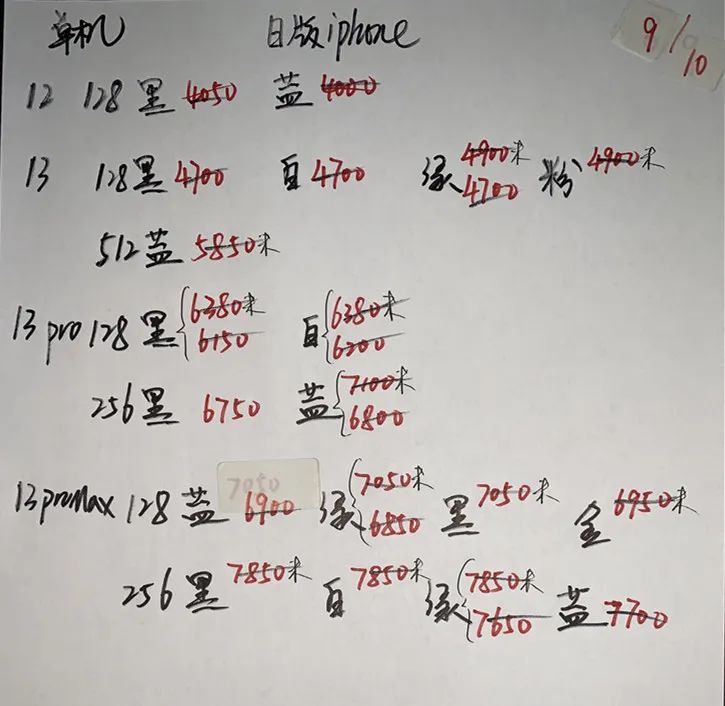 单机 日版iphone 9/10
12 128黑 4050 蓝 4000
13 128黑 4700 白 4700 绿 4900未 4700 粉 4900未
512蓝 5850未
13 pro 128黑 6380未 6150 白 6380未 6200
256黑 6750 蓝 7100未 6800
13 promax 128 蓝 6900 绿 7050未 6850 黑 7050未 金 6950未
256 黑 7850未 白 7850未 绿 7850未 7650 蓝 7700